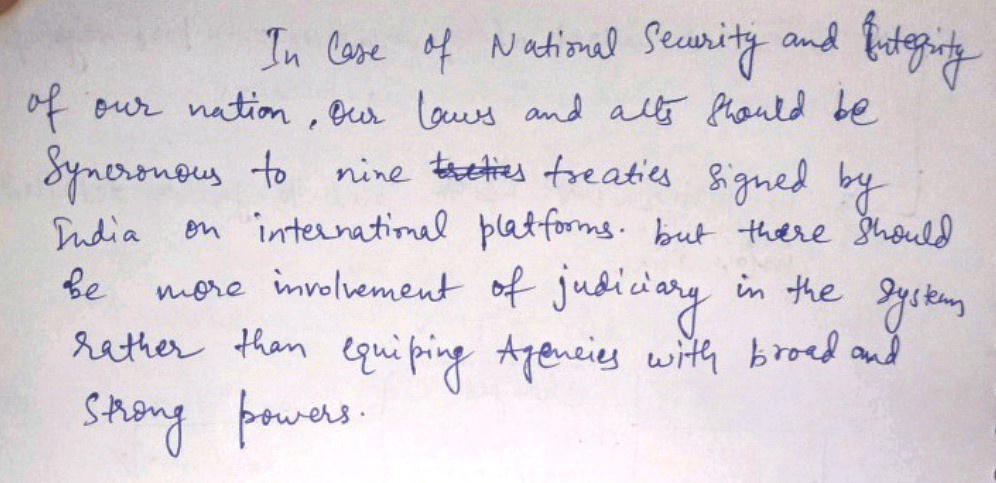 In Case of National Security and Integrity
of our nation, our laws and acts should be
Syncronous to nine treties treaties signed by
India on international platforms. but there should
be more involvement of judiciary in the system
rather than equiping Agencies with broad and
strong powers.